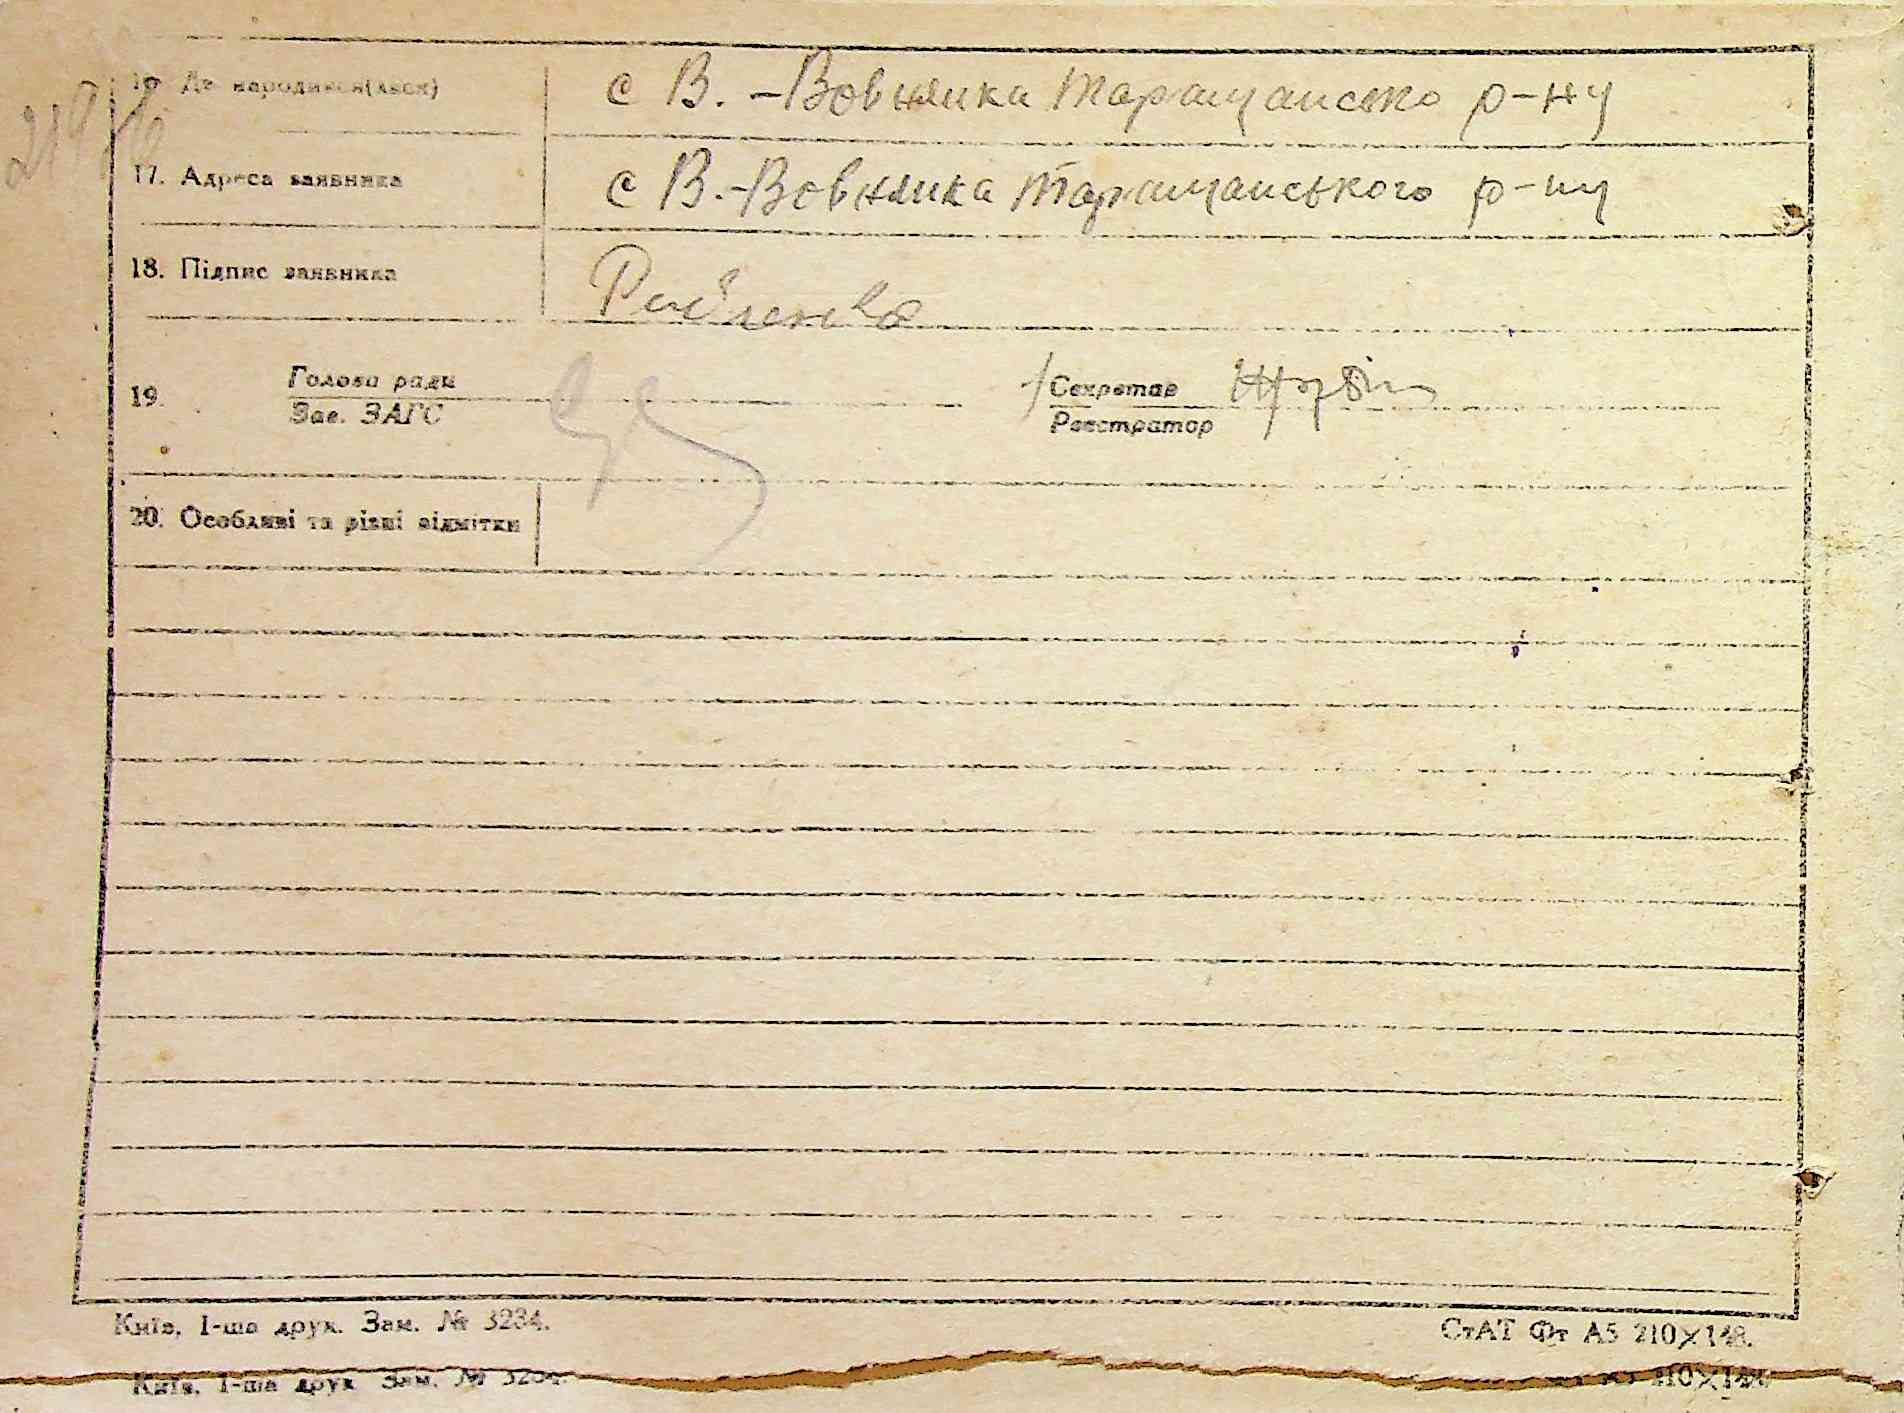 16. Де народився(лася) с В. -Вовнянка Таращансько р-ну
17. Адреса заявника с В.-Вовнянка Таращанського р-ну
18. Підпис заявника
19. Голова ради Секретар
Зав. ЗАГС Реєстратор
20. Особливі та різні відмітки
Київ, 1-ша друк. Зам. № 3234. СтАТ Фт А5 210×148.
Київ, 1-ша друк. Зам. № 210×148